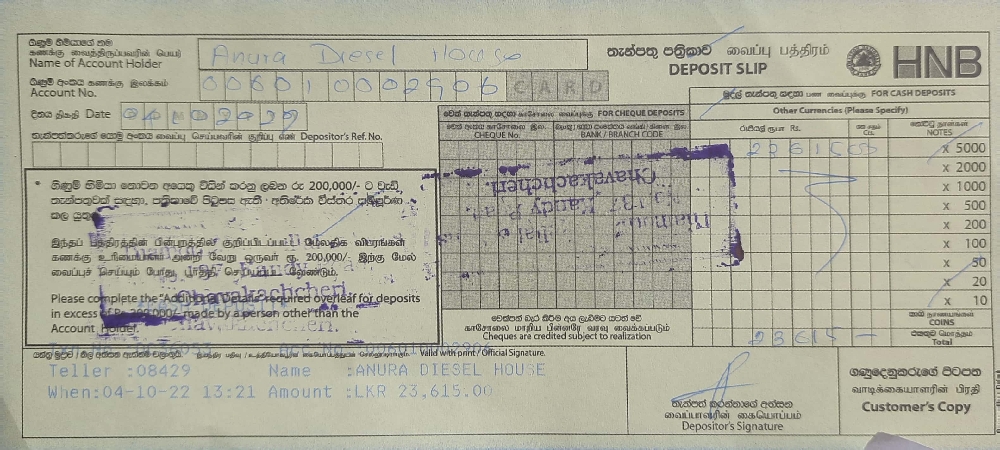 ගිණුම් හිමියාගේ නම
கணக்கு வைத்திருப்பவரின் பெயர்
Name of Account Holder
Anura Diesel House
තැන්පතු පත්‍රිකාව வைப்பு பத்திரம்
DEPOSIT SLIP
HNB
ගිණුම් අංකය கணக்கு இலக்கம்
Account No.
006010002906 CARD
දිනය திகதி Date
04102022
තැන්පත්කරුගේ යොමු අංකය வைப்பு செய்பவரின் குறிப்பு எண் Depositor's Ref. No.
චෙක් තැන්පතු සඳහා காசோலை வைப்புக்கு FOR CHEQUE DEPOSITS
CHEQUE No.
BANK / BRANCH CODE
මුදල් තැන්පතු සඳහා பண வைப்புக்கு FOR CASH DEPOSITS
Other Currencies (Please Specify)
රුපියල් ரூபா Rs.
Cts.
NOTES
23615
x 5000
x 2000
x 1000
x 500
x 200
x 100
x 50
x 20
x 10
COINS
Total
23615 -
* ගිණුම් හිමියා නොවන අයෙකු විසින් කරනු ලබන රු 200,000/- ට වැඩි,
තැන්පතුවක් සඳහා, පත්‍රිකාවේ පිටුපස ඇති අතිරේක විස්තර සම්පූර්ණ
කල යුතුය
இந்தப் பத்திரத்தின் பின்புறத்தில் குறிப்பிடப்பட்ட மேலதிக விபரங்கள்
கணக்கு உரிமையாளர் அன்றி வேறு ஒருவர் ரூ. 200,000/- இற்கு மேல்
வைப்புச் செய்யும் போது, பூர்த்தி செய்யப்பட வேண்டும்.
Please complete the "Additional Details" required overleaf for deposits
in excess of Rs. 200,000/- made by a person other than the
Account Holder.
Chavakachcheri.
Kandy
Chavakachcheri.
චෙක්පත් බැර කිරීම අය ලැබීමට යටත් වේ
காசோலை மாறிய பின்னரே வரவு வைக்கப்படும்
Cheques are credited subject to realization
Valid with print / Official Signature.
Teller :08429 Name :ANURA DIESEL HOUSE
When:04-10-22 13:21 Amount :LKR 23,615.00
තැන්පත් කරන්නාගේ අත්සන
வைப்பாளரின் கையொப்பம்
Depositor's Signature
ගණුදෙනුකරුගේ පිටපත
வாடிக்கையாளரின் பிரதி
Customer's Copy